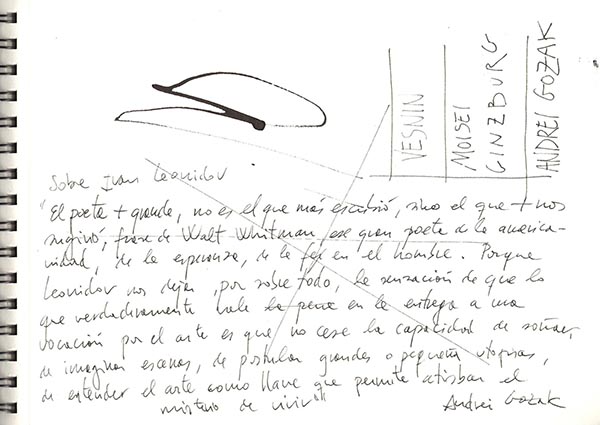 VESNIN
MOISEI
GINZBURG
ANDREI GOZAK
Sobre Ivan Leonidov
"El poeta + grande, no es el que más escribió, sino el que + nos
sugirió, frase de Walt Whitman, ese gran poeta de la america-
nidad, de la esperanza, de la fe, en el hombre. Porque
Leonidov nos deja, por sobre todo, la sensación de que lo
que verdaderamente vale la pena en la entrega a una
vocación por el arte es que no cese la capacidad de soñar,
de imaginar escenas, de postular grandes o pequeñas utopías,
de entender el arte como llave que permite atisbar el
misterio de vivir"
Andrei Gozak